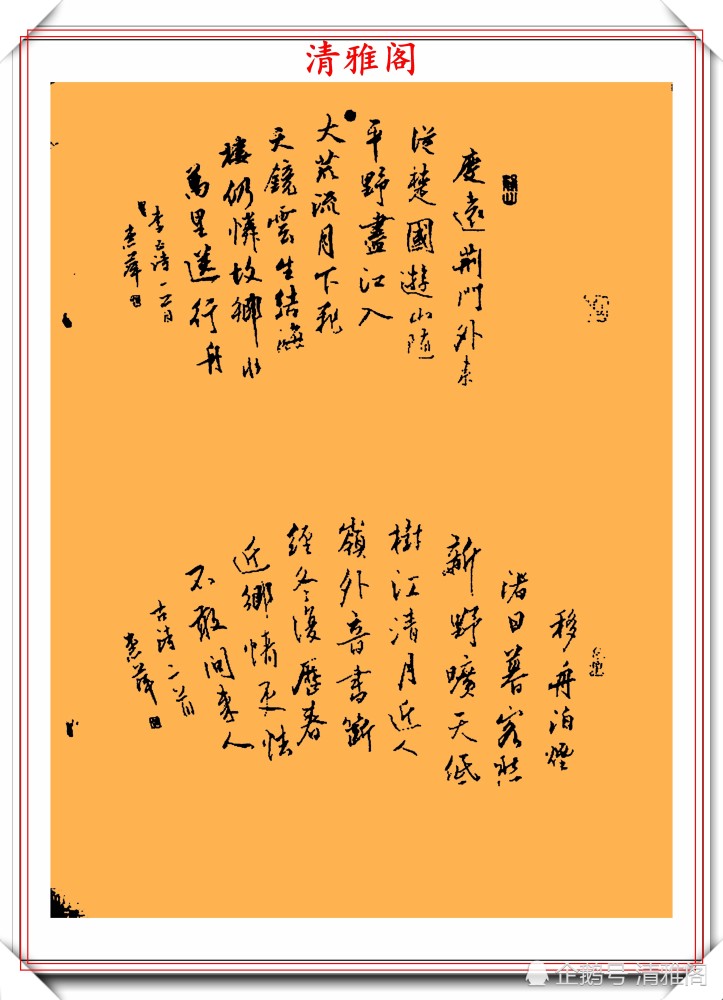 清雅阁
度遠荆門外来
從楚國遊山随
平野盡江入
大荒流月下飛
天鏡雲生結海
樓仍憐故鄉水
萬里送行舟
李白詩一首
移舟泊煙
渚日暮客愁
新野曠天低
樹江清月近人
嶺外音書斷
經冬復歷春
近鄉情更怯
不敢問来人
古詩二首
企鹅号 清雅阁